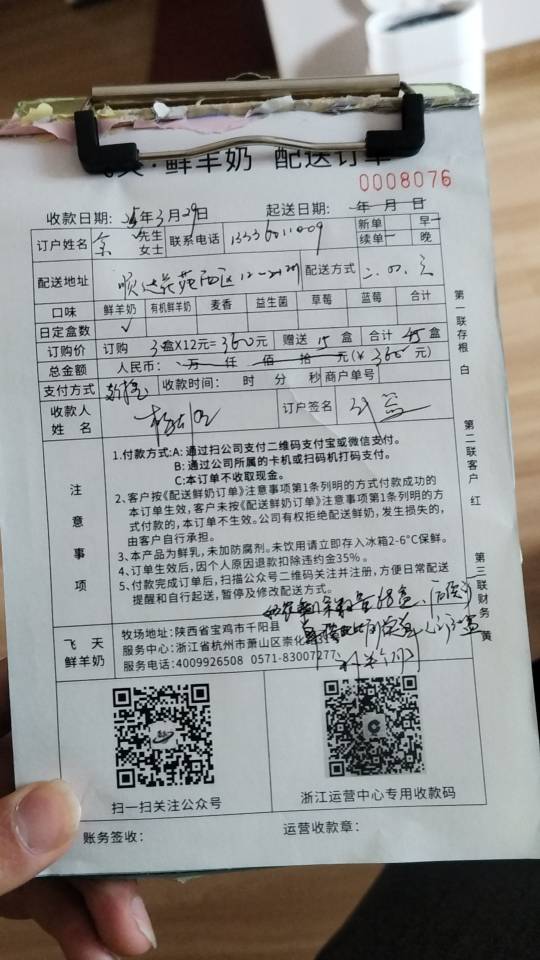 ·鲜羊奶 配送订单
0008076
收款日期: 年3月29日 起送日期: 年 月 日
订户姓名 余 先生 女士 联系电话 新单 早
续单 晚
配送地址 配送方式
口味 鲜羊奶 有机鲜羊奶 麦香 益生菌 草莓 蓝莓 合计
日定盒数 ✓
订购价 订购 盒X12元=360元 赠送 15 盒 合计 45 盒
总金额 人民币: 万 仟 佰 拾 元(¥ 360 元)
支付方式 收款时间: 时 分 秒 商户单号
收款人姓名 订户签名
注意事项
1.付款方式:A: 通过扫公司支付二维码支付宝或微信支付。
B: 通过公司所属的卡机或扫码机打码支付。
C:本订单不收取现金。
2、客户按《配送鲜奶订单》注意事项第1条列明的方式付款成功的
本订单生效，客户未按《配送鲜奶订单》注意事项第1条列明的方
式付款的，本订单不生效。公司有权拒绝配送鲜奶，发生损失的，
由客户自行承担。
3、本产品为鲜乳，未加防腐剂。未饮用请立即存入冰箱2-6°C保鲜。
4、订单生效后，因个人原因退款扣除违约金35%。
5、付款完成订单后，扫描公众号二维码关注并注册，方便日常配送
提醒和自行起送，暂停及修改配送方式。
飞天
鲜羊奶
牧场地址: 陕西省宝鸡市千阳县
服务中心: 浙江省杭州市萧山区崇化
服务电话: 4009926508 0571-83007277
扫一扫关注公众号
浙江运营中心专用收款码
账务签收: 运营收款章:
第一联存根 白
第二联客户 红
第三联财务 黄